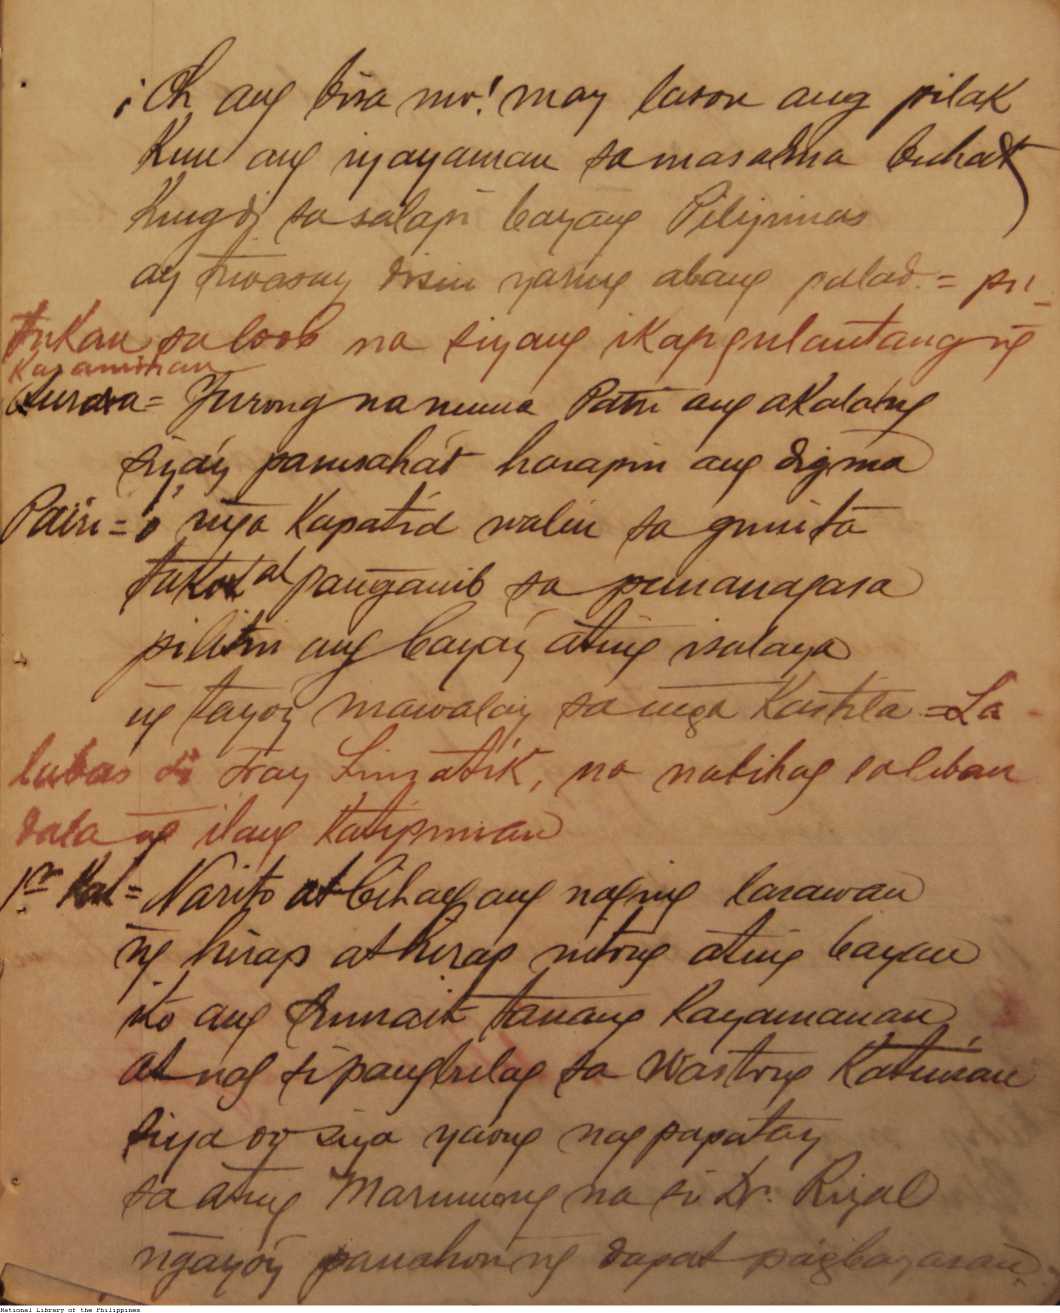 ¡Oh ang bisa mo! may lason ang pilak
Kun ang ay sa masama buhat
Kungdi sa salapi bayang Pilipinas
ay tiwasay disin yaring abang palad. = pu-
tukan sa loob na siyang ikapgulantang ng̃
Kasamahan
Aurora = Yurong na muna Patri ang akalang
siyáy parusahát harapin ang digma
Patri = ó mg̃a Kapatid walin sa gunita
takot at pang̃anib sa punanagasa
pilitin ang bayáy ating isalaya
ng̃ tayóy mawalay sa mg̃a Kastila = La
labas si Fray na nabihag
dala ng̃ ilang Katipunan
1er Kat = Narito at bihag ang naging larawan
ng̃ hirap at hirap nitong ating bayan
ito ang tanang Kayamanan
at nag si pangbulag sa wastong Katuiran
siya oo siya yaong nagpapatay
sa ating Marunong na si Dr. Rizal
ng̃ayóy panahon ng̃ dapat pagbayaran.
National Library of the Philippines